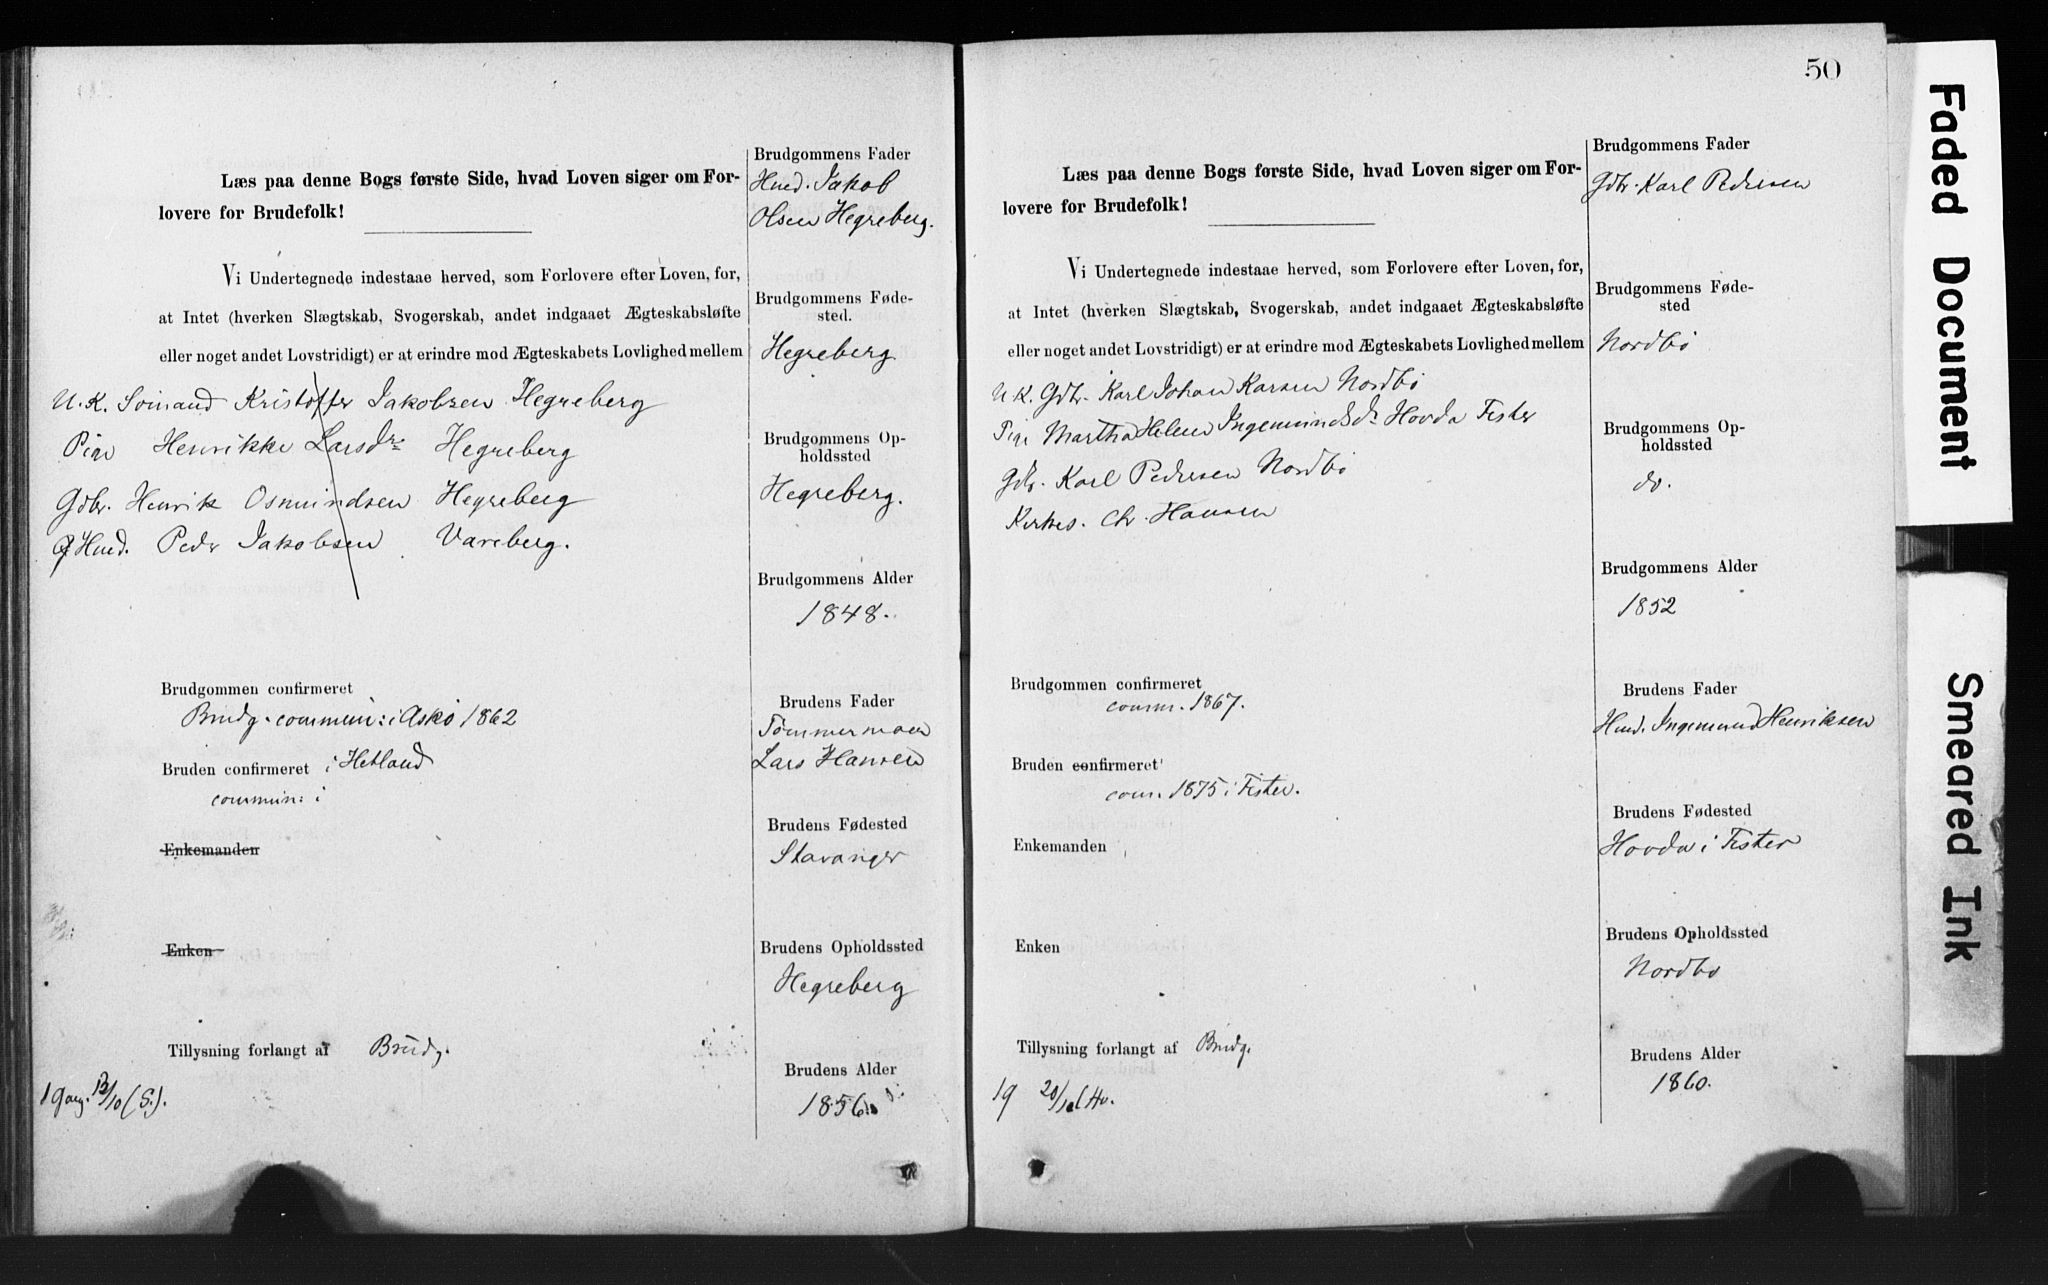 Læs paa denne Bogs første Side, hvad Loven siger om For-
lovere for Brudefolk!
Vi Undertegnede indestaae herved, som Forlovere efter Loven, for,
at Intet (hverken Slægtskab, Svogerskab, andet indgaaet Ægteskabsløfte
eller noget andet Lovstridigt) er at erindre mod Ægteskabets Lovlighed mellem
U. K. Sömand Kristoffer Jakobsen Hegreberg
Pige Henrikke Larsdr Hegreberg
Gdbr. Henrik Osmundsen Hegreberg
Hmd. Peder Jakobsen Vareberg.
Brudgommen confirmeret
Brudg. commun: i Askö 1862
Bruden confirmeret i Hetland
commun: i
Enkemanden
Enken
Tillysning forlangt af Brudg.
1 Gang. 13/10 (S.).
Brudgommens Fader
Hmd. Jakob
Olsen Hegreberg.
Brudgommens Føde-
sted.
Hegreberg
Brudgommens Op-
holdssted
Hegreberg.
Brudgommens Alder
1848.
Brudens Fader
Tømmermand
Lars Hansen
Brudens Fødested
Stavanger
Brudens Opholdssted
Hegreberg
Brudens Alder
1856
50
Læs paa denne Bogs første Side, hvad Loven siger om For-
lovere for Brudefolk!
Vi Undertegnede indestaae herved, som Forlovere efter Loven, for,
at Intet (hverken Slægtskab, Svogerskab, andet indgaaet Ægteskabsløfte
eller noget andet Lovstridigt) er at erindre mod Ægteskabets Lovlighed mellem
U. K. Gdbr. Karl Johan Karsen Nordbö
Pige Martha Helene Ingemundsdr Hovda Fister
Gdbr. Karl Pedersen Nordbö
Kirkes. Chr. Hansen
Brudgommen confirmeret
comm. 1867.
Bruden confirmeret
com. 1875 i Fister.
Enkemanden
Enken
Tillysning forlangt af Brudg.
1 G 20/10 (Hv.
Brudgommens Fader
Gdbr. Karl Pedersen
Brudgommens Føde-
sted
Nordbö
Brudgommens Op-
holdssted
do.
Brudgommens Alder
1852
Brudens Fader
Hmd. Ingemund Henriksen
Brudens Fødested
Hovda i Fister
Brudens Opholdssted
Nordbö
Brudens Alder
1860.
Faded Document
Smeared Ink